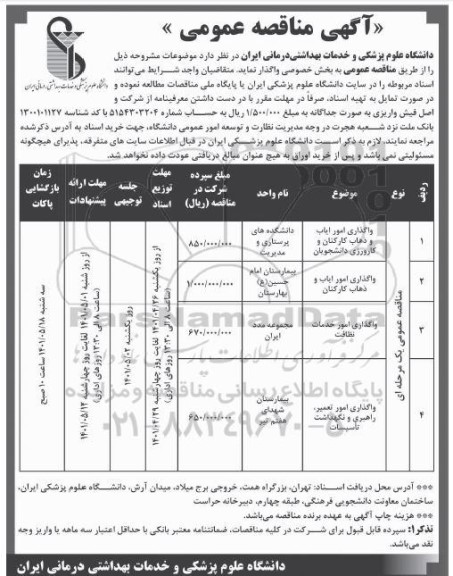 «آگهی مناقصه عمومی»
دانشگاه علوم پزشکی و خدمات بهداشتی درمانی ایران
دانشگاه علوم پزشکی و خدمات بهداشتی‌درمانی ایران در نظر دارد موضوعات مشروحه ذیل
را از طریق مناقصه عمومی به بخش خصوصی واگذار نماید. متقاضیان واجد شرایط می‌توانند
اسناد مربوطه را در سایت دانشگاه علوم پزشکی ایران یا پایگاه ملی مناقصات مطالعه نموده و
در صورت تمایل به تهیه اسناد، صرفاً در مهلت مقرر با در دست داشتن معرفینامه از شرکت و
اصل فیش واریزی به صورت جداگانه به مبلغ ۱/۵۰۰/۰۰۰ ریال به حساب شماره ۵۱۵۴۳۰۳۲۰۴ با کد شناسه ۱۳۰۰۱۰۱۱۲۷
بانک ملت نزد شعبه هجرت در وجه مدیریت نظارت و توسعه امور عمومی دانشگاه، جهت خرید اسناد به آدرس ذکرشده
مراجعه نمایند. لازم به ذکر است دانشگاه علوم پزشکی ایران در قبال اطلاعات سایت های متفرقه، پذیرای هیچگونه
مسئولیتی نمی باشد و پس از خرید اوراق به هیچ عنوان مبالغ دریافتی عودت داده نخواهد شد.
ردیف
نوع
موضوع
نام واحد
مبلغ سپرده شرکت در مناقصه (ریال)
مهلت توزیع اسناد
جلسه توجیهی
مهلت ارائه پیشنهادات
زمان بازگشایی پاکات
مناقصه عمومی یک مرحله ای
۱
واگذاری امور ایاب و ذهاب کارکنان و کارورزی دانشجویان
دانشکده های پرستاری و مدیریت
۸۵۰/۰۰۰/۰۰۰
۲
واگذاری امور ایاب و ذهاب کارکنان
بیمارستان امام حسین(ع) بهارستان
۱/۰۰۰/۰۰۰/۰۰۰
۳
واگذاری امور خدمات نظافت
مجموعه مدد ایران
۶۷۰/۰۰۰/۰۰۰
۴
واگذاری امور تعمیر، راهبری و نگهداشت تأسیسات
بیمارستان شهدای هفتم تیر
۶۵۰/۰۰۰/۰۰۰
از روز یکشنبه ۱۴۰۱/۰۴/۲۶ لغایت روز چهارشنبه ۱۴۰۱/۰۴/۲۹
(ساعت ۸ الی ۱۳:۳۰ روزهای اداری)
یکشنبه ۱۴۰۱/۰۵/۰۲
از روز شنبه ۱۴۰۱/۰۵/۰۱ لغایت روز چهارشنبه ۱۴۰۱/۰۵/۱۲
(ساعت ۸ الی ۱۳:۳۰ روزهای اداری)
سه شنبه ۱۴۰۱/۰۵/۱۸ ساعت ۱۰ صبح
ParsNamadData
پایگاه اطلاع رسانی مناقصه و مزایده
۰۲۱-۸۸۳۴۹۶۷۰-۵
*** آدرس محل دریافت اسناد: تهران، بزرگراه همت، خروجی برج میلاد، میدان آرش، دانشگاه علوم پزشکی ایران،
ساختمان معاونت دانشجویی فرهنگی، طبقه چهارم، دبیرخانه حراست
*** هزینه چاپ آگهی به عهده برنده مناقصه می‌باشد.
تذکر۱: سپرده قابل قبول برای شرکت در کلیه مناقصات، ضمانتنامه معتبر بانکی با حداقل اعتبار سه ماهه یا واریز وجه
نقد می‌باشد.
دانشگاه علوم پزشکی و خدمات بهداشتی درمانی ایران